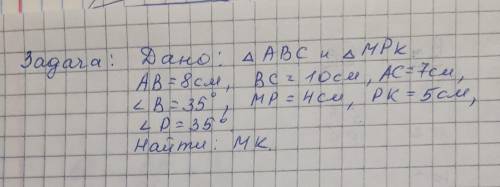 Задача: Дано: △ABC и △MPK
AB=8см, BC=10см, AC=7см,
∠B=35°, MP=4см, PK=5см,
∠P=35°
Найти: MK.